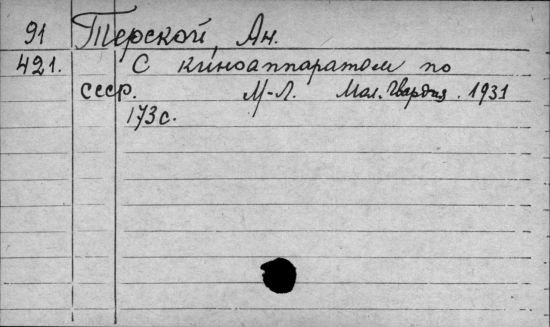 91 Терской, Ан.
421. С киноаппаратом по
СССР. М-Л. Мол. Гвардия. 1931
173 с.